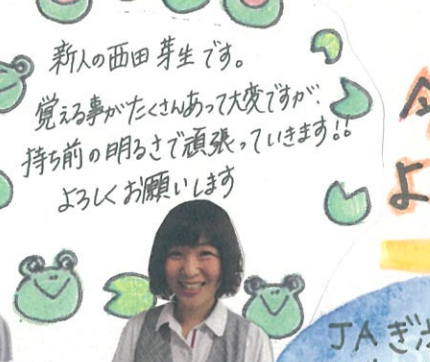 新人の西田 芽生 です。
覚える事がたくさんあって大変ですが、
持ち前の明るさで頑張っていきます!!
よろしくお願いします
よ
JAぎふ